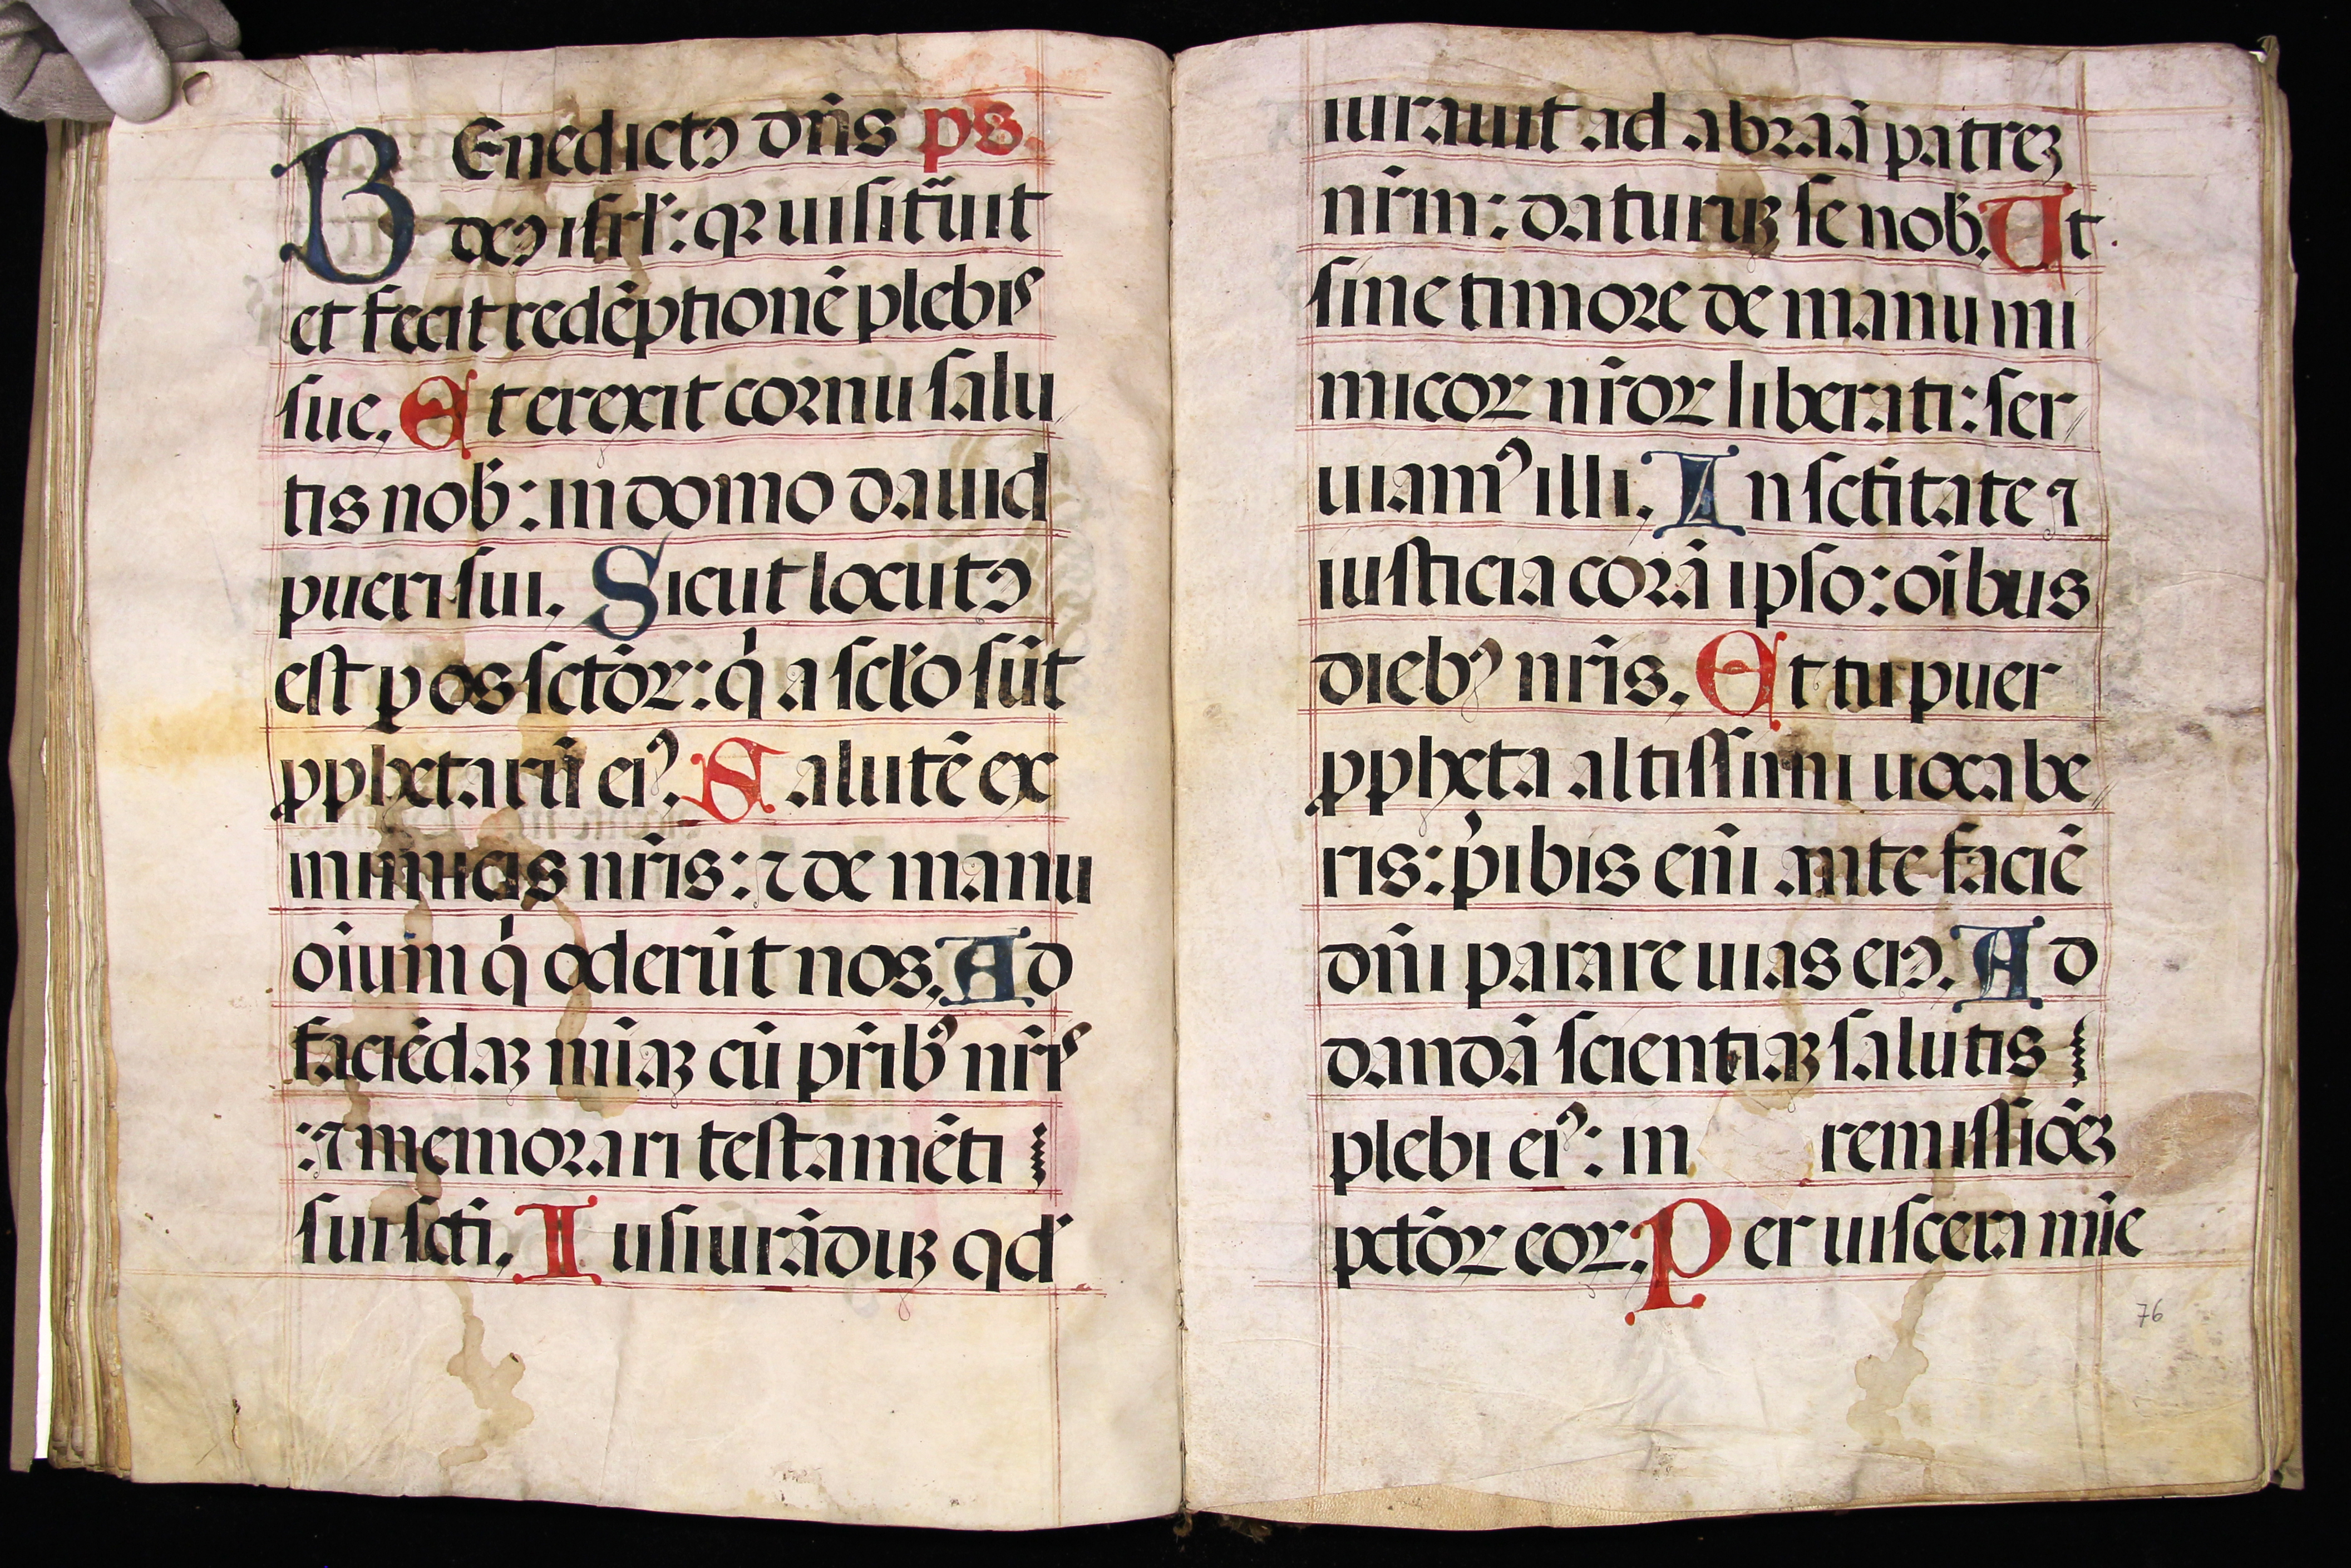 BEnedictꝰ dn̄s ps.
deꝰ isrl̄: qꝛ uisitāuit
et fecit redēptionē plebis
sue. Et erexit cornu salu
tis nob̄: in domo dauid
pueri sui. Sicut locutꝰ
est ꝑ os sctōꝝ: q̇ a scl̄o sūt
ꝓphetarū eiꝰ. Salutē ex
inimicis nr̄is: ⁊ de manu
oīum q̇ oderūt nos. Ad
faciēdaꝫ mīaꝫ cū pr̄ibꝰ nr̄is
:⁊ memorari testamēti
sui scti. Iusiurādūꝫ qd̄
iurauit ad abraā patreꝫ
nr̄m: daturuꝫ se nob̄. Ut
sine timore de manu ini
micoꝝ nr̄oꝝ liberati: ser
uiamꝰ illi. In sctītate ⁊
iusticia corā ipso: oībus
diebꝰ nr̄is. Et tu puer
ꝓpheta altissimi uocabe
ris: p̄ibis eni̅ ante faciē
dn̄i parare uias eiꝰ. Ad
dandā scientiaꝫ salutis
plebi eiꝰ: in remissiōeꝫ
pctōꝝ eoꝝ. Per uiscera mīe
76